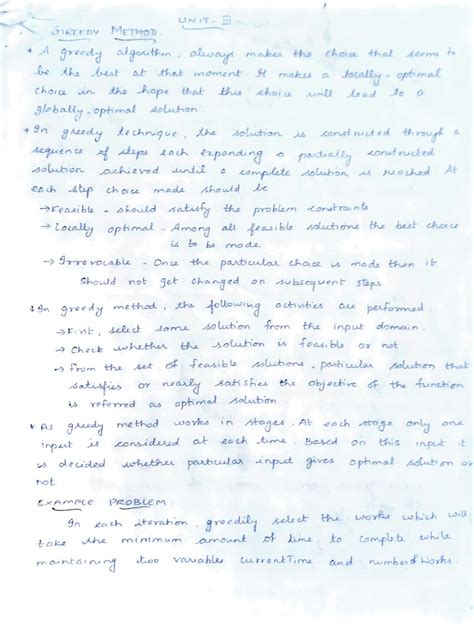 UNIT-III
GREEDY METHOD.
* A greedy algorithm, always makes the choice that seems to
be the best at that moment. It makes a locally-optimal
choice in the hope that this choice will lead to a
globally-optimal solution.
* In greedy technique, the solution is constructed through a
sequence of steps each expanding a partially constructed
solution achieved until a complete solution is reached. At
each step choice made should be
→ Feasible - should satisfy the problem constraints
→ Locally optimal - Among all feasible solutions the best choice
is to be made
→ Irrevocable - Once the particular choice is made then it
should not get changed on subsequent steps
* In greedy method, the following activities are performed.
→ First, select some solution from the input domain.
→ Check whether the solution is feasible or not.
→ From the set of feasible solutions, particular solution that
satisfies or nearly satisfies the objective of the function
is referred as optimal solution
* As greedy method works in stages. At each stage only one
input is considered at each time. Based on this input it
is decided whether particular input gives optimal solution or
not
EXAMPLE PROBLEM:
In each iteration, greedily select the works which will
take the minimum amount of time to complete while
maintaining two variables currentTime and numberOfWorks.